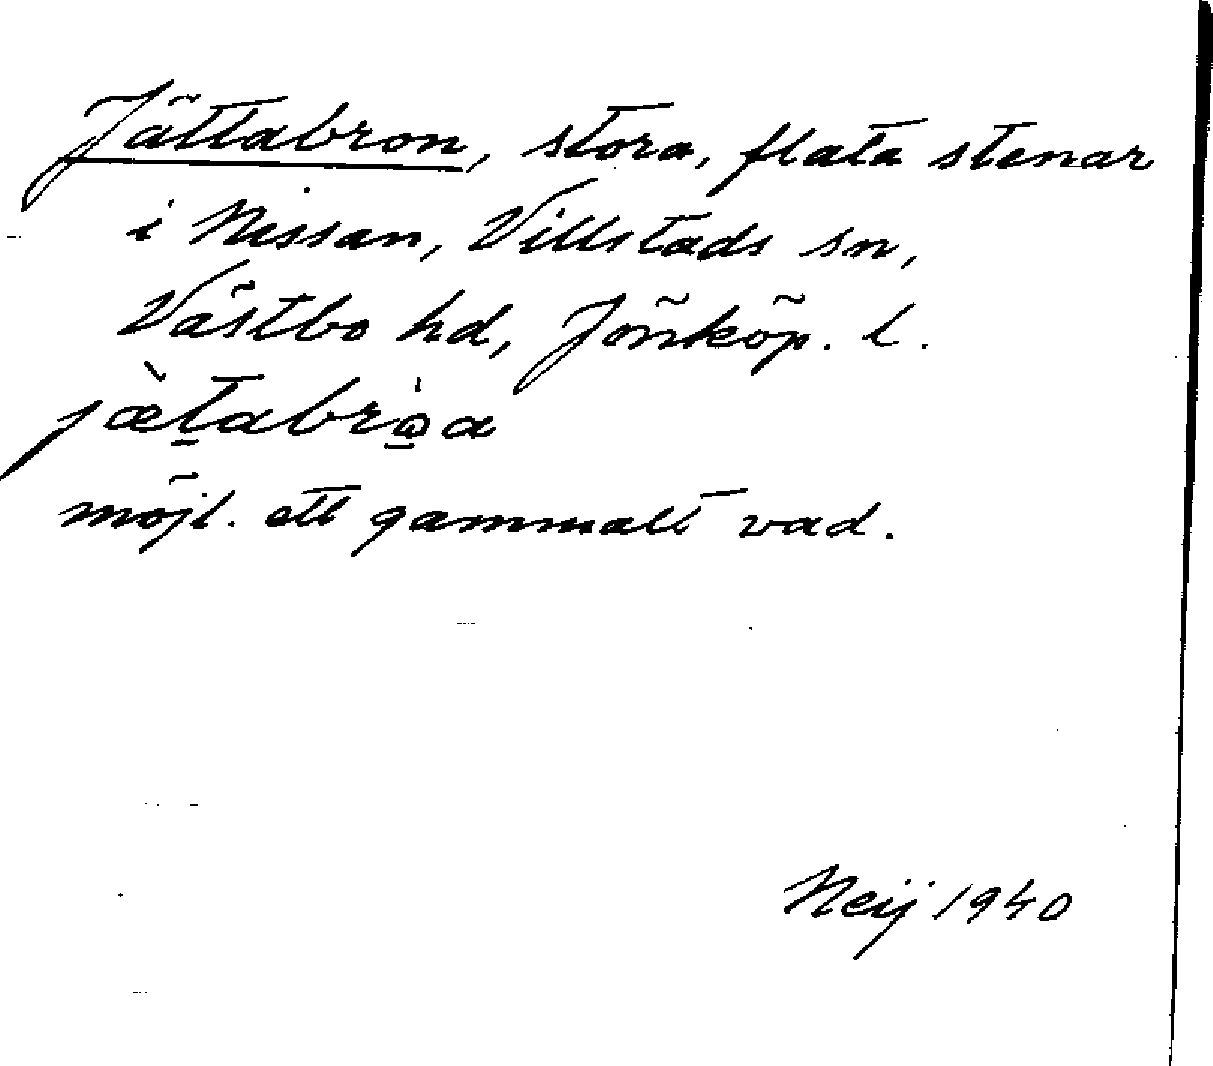 Jättabron, stora, flata stenar
i Nissan, Villstads sn,
Västbo hd, Jönköp. l.
jæ̀ṯabrɷ̠̀a
möjl. ett gammalt vad.
Neij 1940